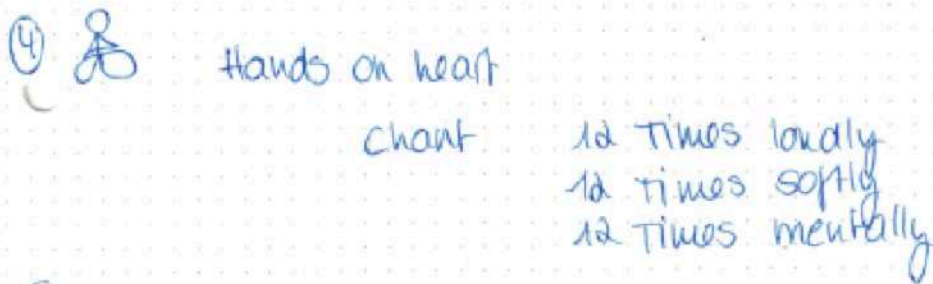 ④ Hands on heart
chant 12 Times loudly
12 Times softly
12 Times mentally